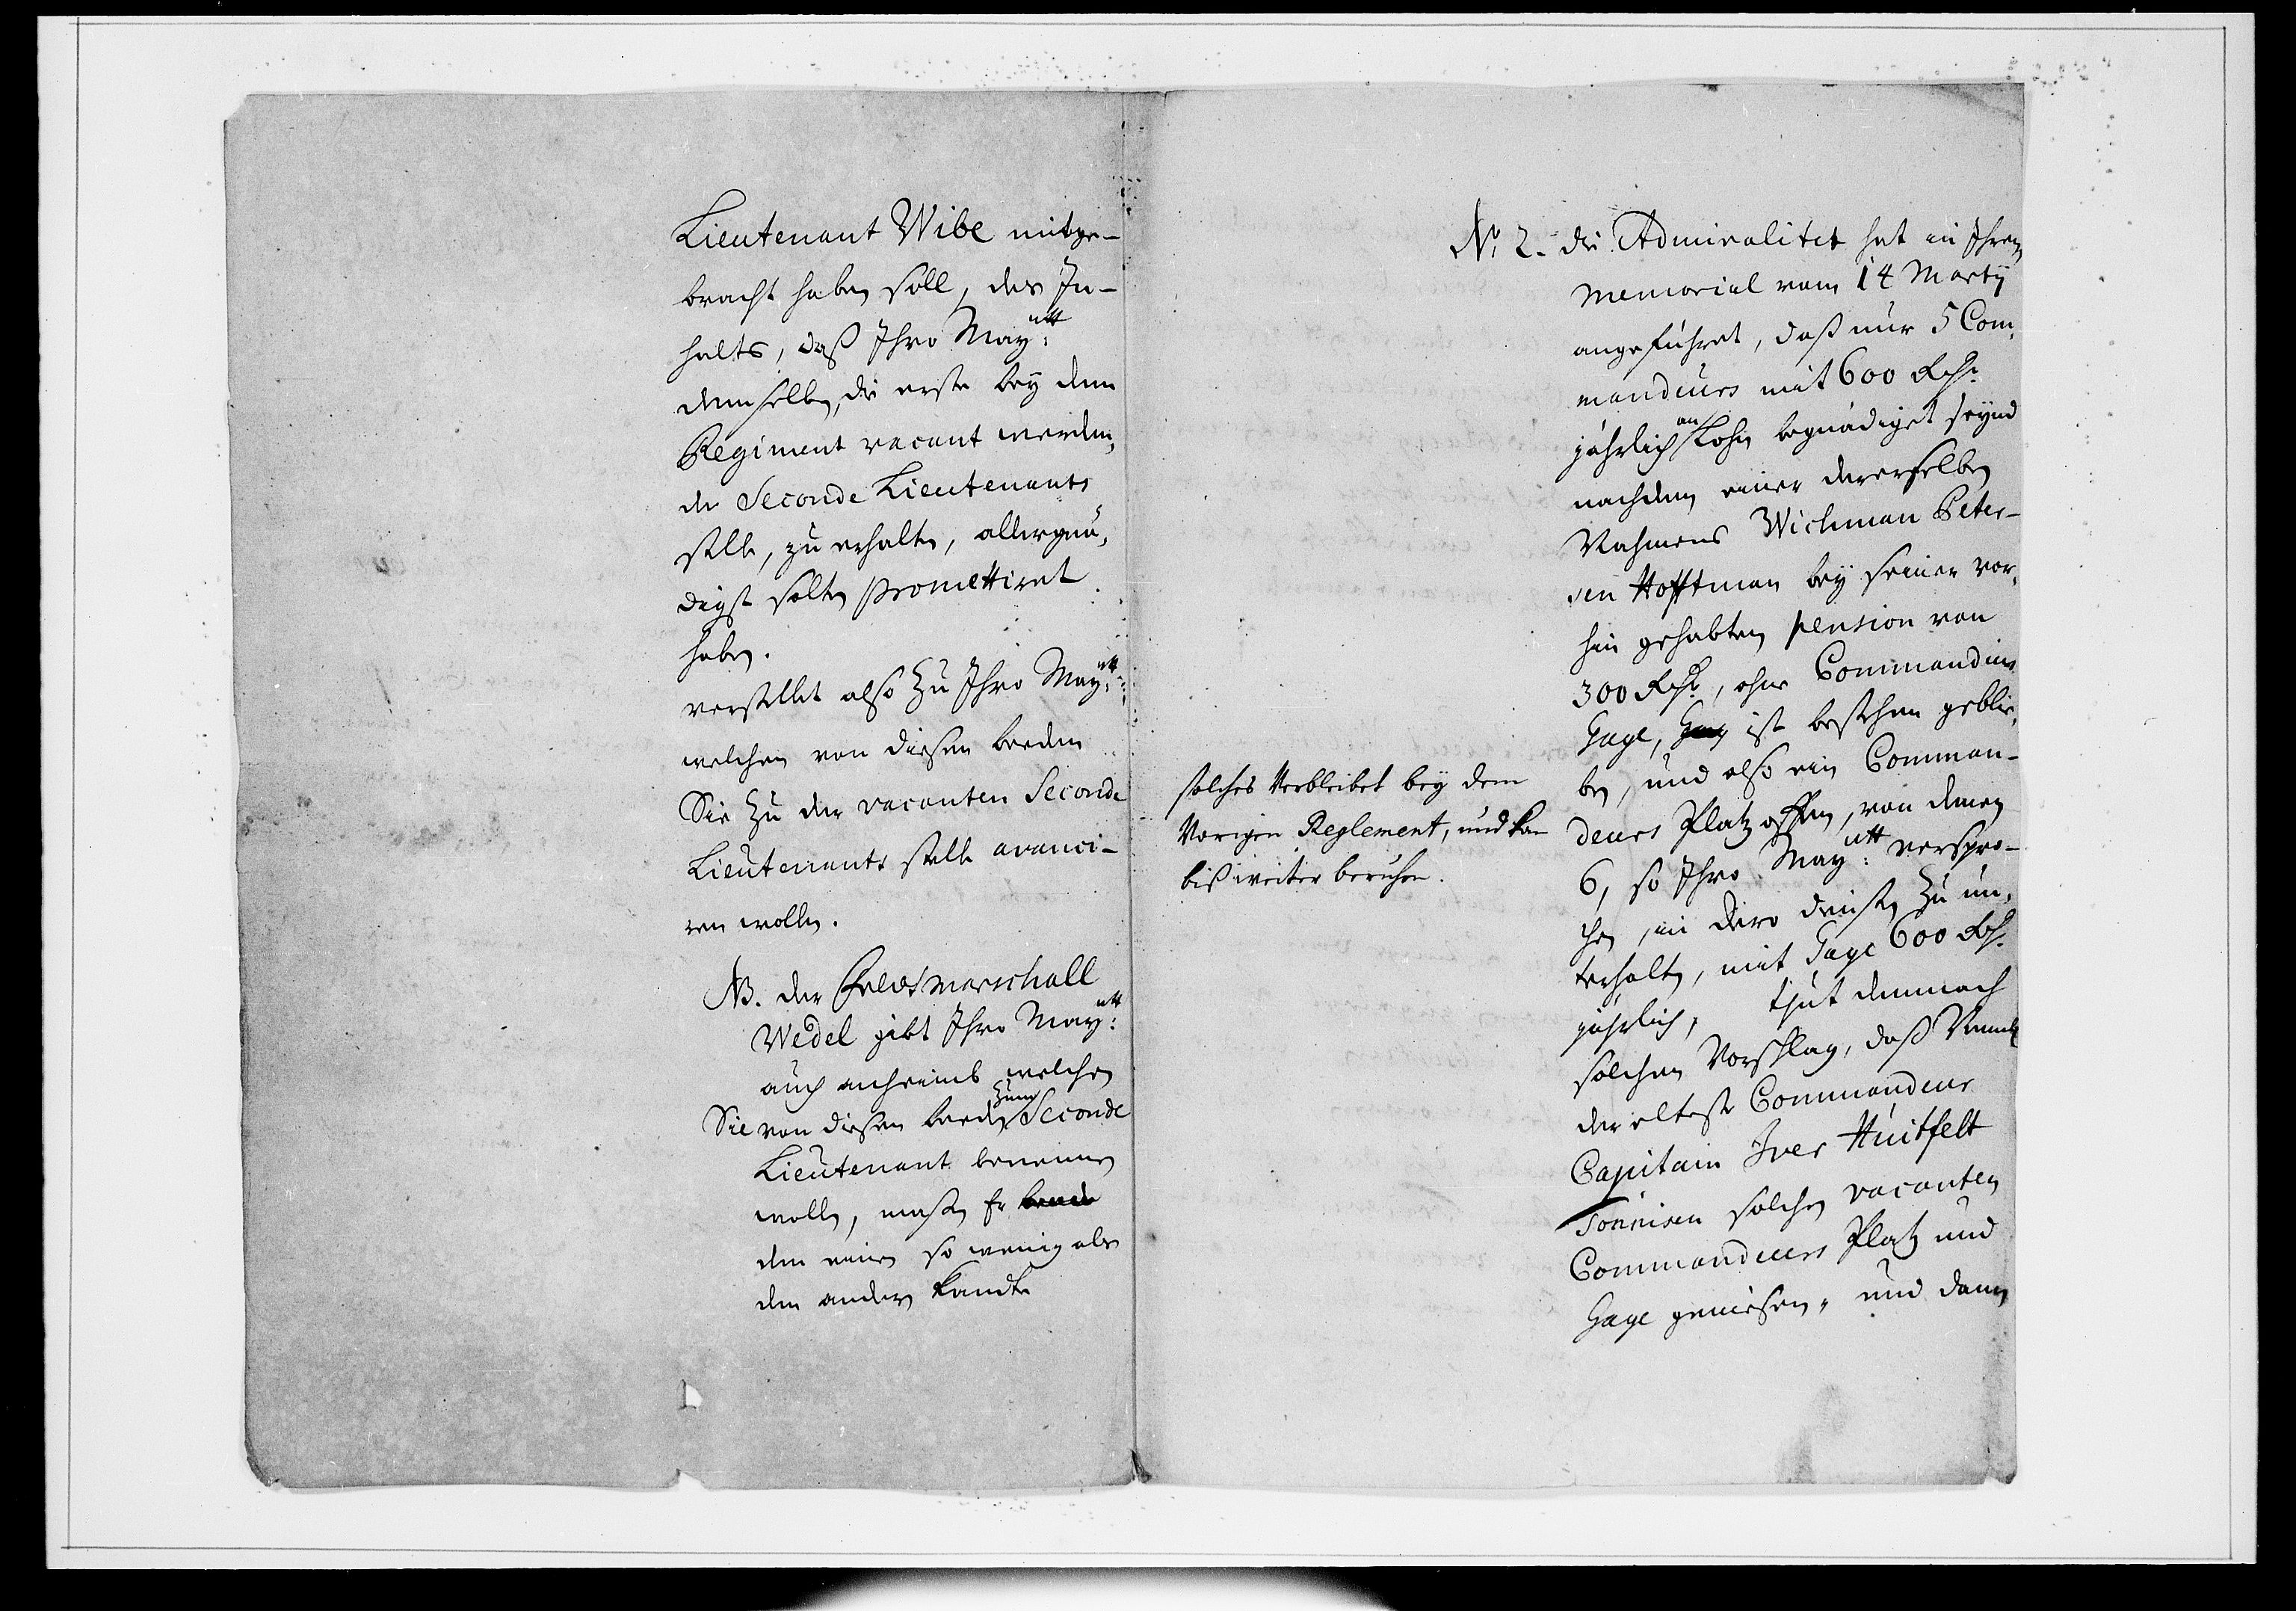 Lieutenant Wibe mitge-
bracht haben soll, des In-
halts, daß Ihro Mayᵗᵗ:
demselben, die erste bey dem
Regiment vacant werden,
de Seconde Lieutenants
stelle, zu erhalten, allergnä,
digst solten promettiret
haben.
verstellet also zu Ihro Mayᵗᵗ:
welchen von diesen beeden
Sie zu der vacanten Seconde
Lieutenants stelle avanci-
ren wollen.
NB. der Feldtmarschall
Wedel gibt Ihro Mayᵗᵗ:
auch anheimb welchen
Sie von diesen beeden zum Seconde
Lieutenant benennen
wollen, maßen Er
den einen so wenig als
den andern kandte
solches Verbleibet bey dem
Vorigen Reglement, und kan
biß weiter beruhen.
No 2. die Admiralitet hat in Ihrem
Memorial vom 14 Martij
angeführet, daß nur 5 Com,
mandeurs mit 600 Rthr
jährlich an Lohn begnädiget seynd
nachdem einer dererselben
Nahmens Wichman Peter-
sen Hofftman bey seiner vor,
hin gehabten pension von
300 Rthr, ohne Commandeurs
Gage, ist bestehen geblie,
ben, und also ein Comman-
deurs Platz offen, von denen
6, so Ihro Mayᵗᵗ: verspro-
chen, in Dero dienste zu un,
terhalten, mit Gage 600 Rthr
jährlich, thut demnach
solchen Vorschlag, daß
der elteste Commandeur
Capitain Iver Huitfelt
Tönnisen solchen vacanten
Commandeurs Platz und
Gage geniesen, und dann